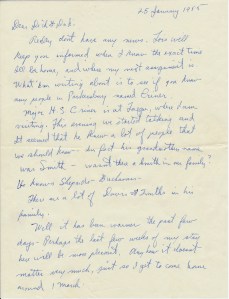 25 January 1965
Dear Dick & Deb.
Really don't have any news. Too well
keep you informed when I know the exact time
I'll be home, and where my next assignment is.
What I'm writing about is to see if you know
any people in Parkersburg named Criner.
Major H. S. Criner is at Taegu, where I am
visiting. This evening we started talking and
it seems that he knew a lot of people that
we should know. In fact his grandmother name
was Smith - wasn't there a Smith in our family?
He knew - Shepards - Buchanan -
There are a lot of & Smiths in his
family.
Well it has been warmer the past few
days - Perhaps the last few weeks of my stay
here will be more pleasant. Anyhow it doesn't
matter very much, just as I get to come home
around 1 March.